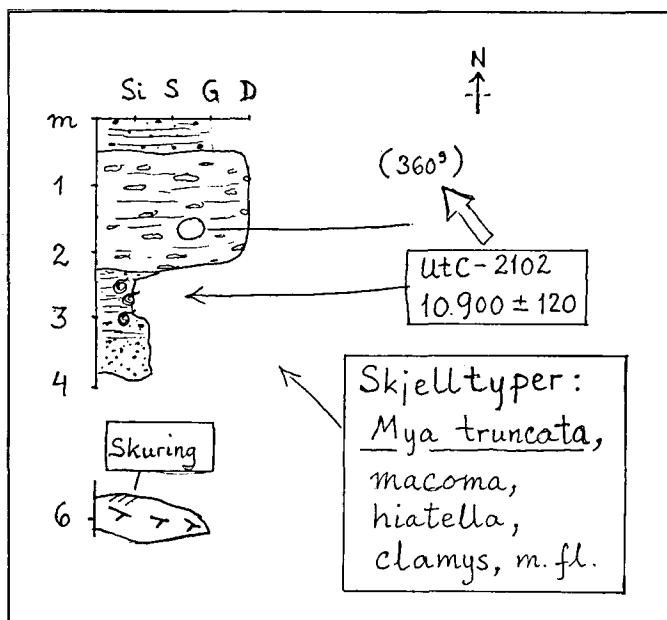 N
Si S G D
m
1
(360g)
2
UtC-2102
10.900 ± 120
3
4
Skjelltyper:
Mya truncata,
macoma,
hiatella,
clamys, m. fl.
Skuring
6